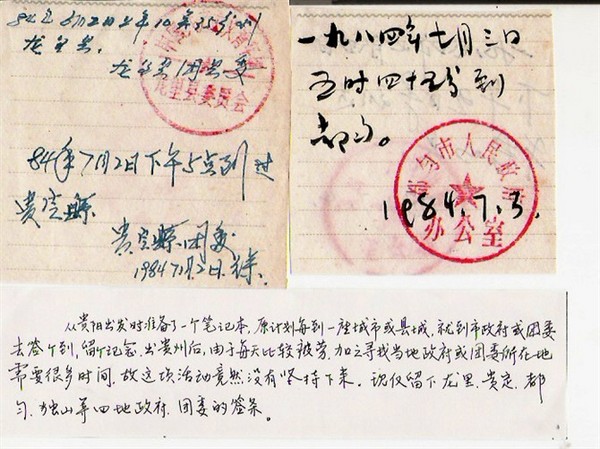 84年7月2日上午10年35分到
龙里县。
龙里县团县委
龙里县委员会
84年7月2日下午5点到过
贵定县
贵定县团委
1984年7月2日
一九八四年七月三日
五时四十五分到
都匀。
都匀市人民政府
办公室
1984.7.3.
从贵阳出发时准备了一个笔记本,原计划每到一座城市或县城,就到市政府或团委
去签个到,留个记念,出贵州后,由于每天比较疲劳,加之寻找当地政府或团委所在地
需要很多时间,故这项活动竟然没有坚持下来。现仅留下龙里、贵定、都
匀、独山等四地政府、团委的签条。